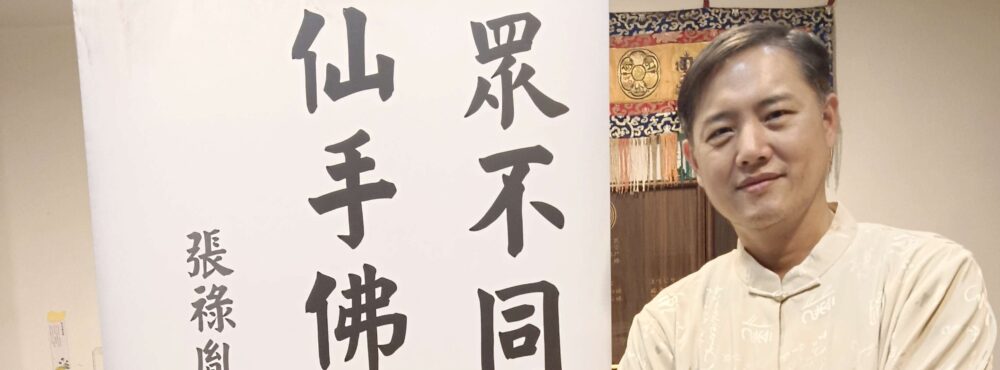 眾不同
仙手佛
張祿胤